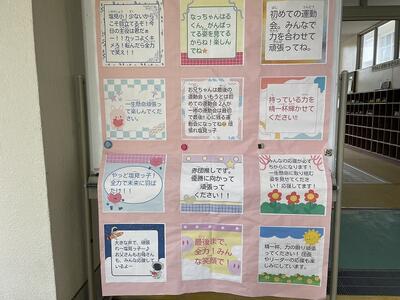 塩見小！少ないから
こそ目立てるぞ！今
日の主役は君だぁ
ー！！カッコよくキ
メろ！転んだら全力
で笑え！！
なっちゃんはる
くん、がんばっ
てる姿を見てる
からね！楽しん
でね
初めての運動
会。みんなで
力を合わせて
頑張ってね。
一生懸命頑張っ
て楽しんでくだ
さい。
お兄ちゃんは最後の
運動会 いもうとは初
めての運動会 2人が
一緒の運動会は最初
で最後！心に残る運
動会になってね 頑
張れ塩見っ子
持っている力を
精一杯輝かせて
ください!!
やっど塩見っ子！
全力で未来に羽ば
たけ！！
赤団推しです。
優勝に向かって
頑張って
ください！！
みんなの応援が必ず
ちからになります！
一生懸命に取り組む
姿を見せてくださ
い！応援してます！
大きな声で、頑張
れー塩見っ子〜♪
お父さんもお母さん
も、みんな応援して
いるよー
最後まで、
全力！みん
な笑顔で！
精一杯、力の限り頑張
ってください！団長
やリーダーの応援も楽
しみにしています。